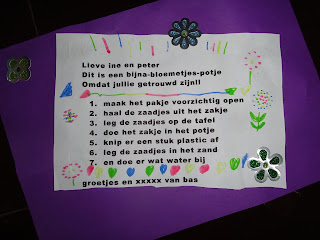 Lieve ine en peter
Dit is een bijna-bloemetjes-potje
Omdat jullie getrouwd zijn!!
1. maak het pakje voorzichtig open
2. haal de zaadjes uit het zakje
3. leg de zaadjes op de tafel
4. doe het zakje in het potje
5. knip er een stuk plastic af
6. leg de zaadjes in het zand
7. en doe er wat water bij
groetjes en xxxxx van bas